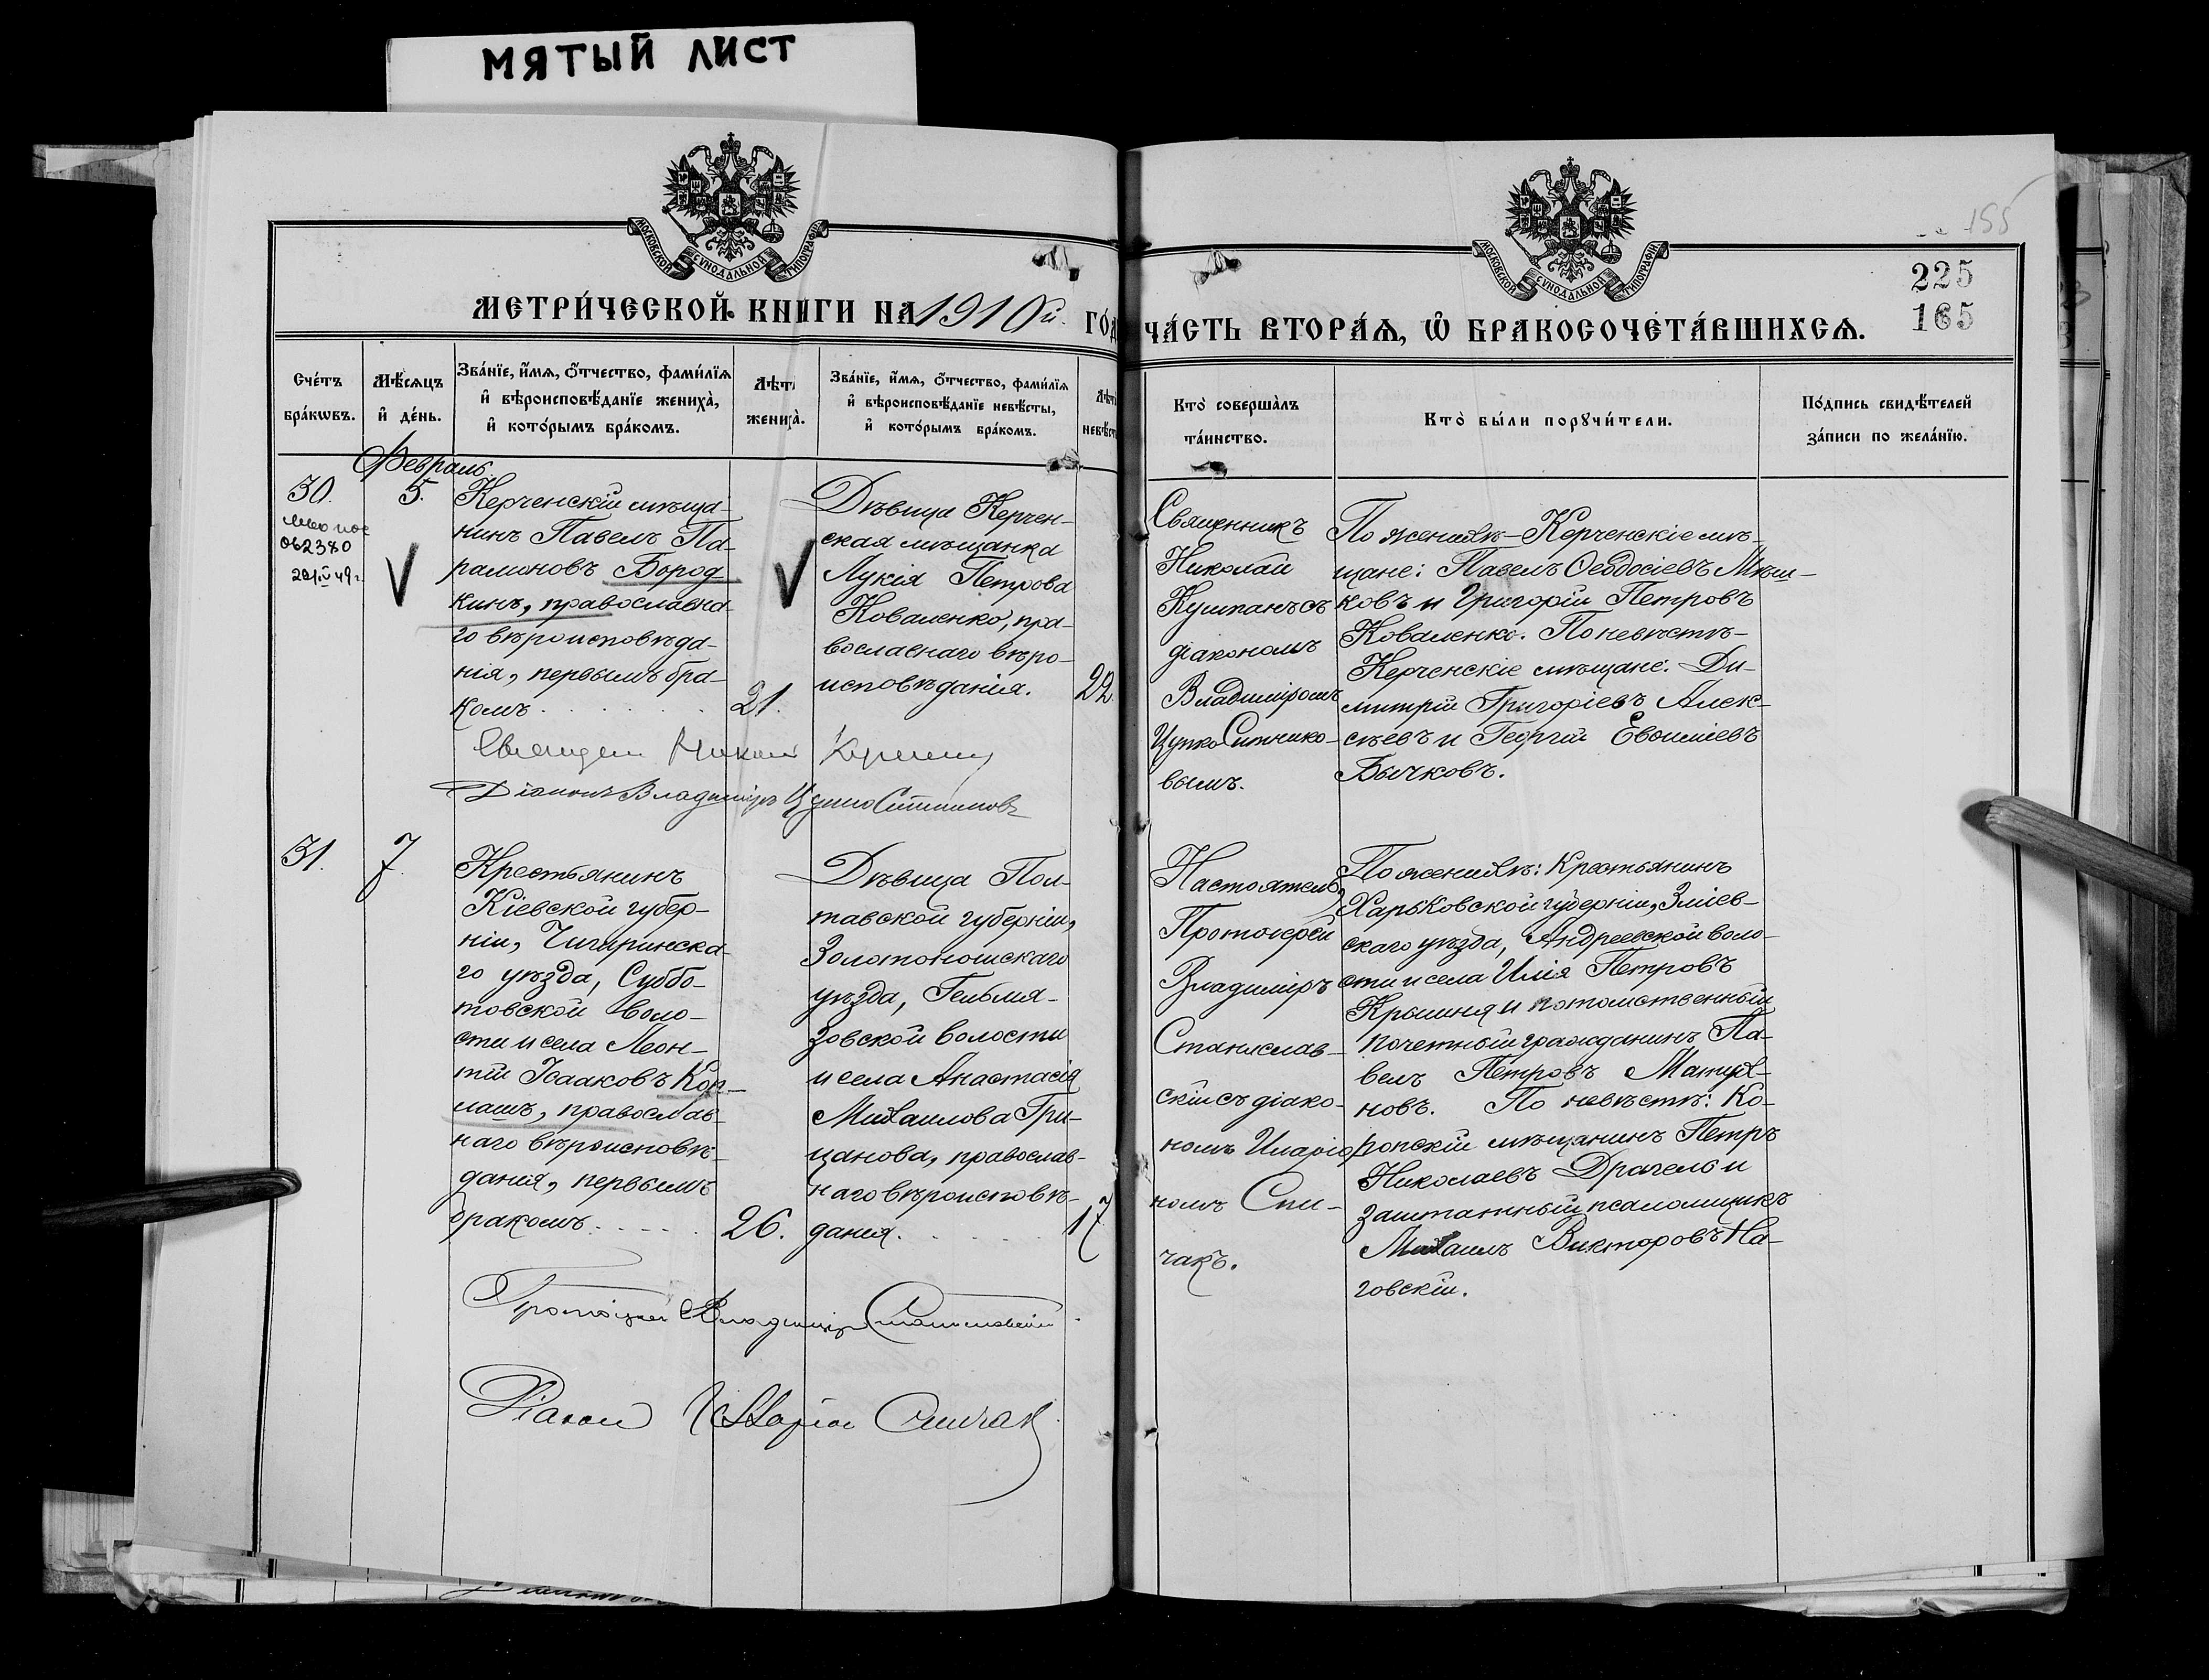 МЯТЫЙ ЛИСТ
155
МОСКОВСКОЙ СѴНОДАЛЬНОЙ ТИПОГРАФІИ
МОСКОВСКОЙ СѴНОДАЛЬНОЙ ТИПОГРАФІИ
225
165
МЕТРИ́ЧЕСКОЙ КНИГИ НА 1910й. ГО́Д
ЧА́СТЬ ВТОРА́Ѧ, Ѡ҆ БРАКОСОЧЕТА́ВШИХСѦ.
Сче́тъ
бра́кѡвъ.
Мѣ́сѧцъ
и҆ де́нь.
Зва́нїе, и҆́мѧ, ѻ҆́тчество, фами́лїѧ
и҆ вѣроисповѣ́данїе жениха̀,
и҆ кото́рымъ бра́комъ.
Лѣт
жениха̀.
Зва́нїе, и҆́мѧ, ѻ҆́тчество, фами́лїѧ
и҆ вѣроисповѣ́данїе невѣ́сты,
и҆ кото́рымъ бра́комъ.
Лѣт
невѣст
Кто̀ соверша̀лъ
та́инство.
Кто̀ бы́ли порꙋчи́тели.
По́дпись свидѣ́телей
за́писи по жела́нїю.
Февраль.
30.
062380
5.
Керченскій мѣща-
нинъ Павелъ Па-
рамоновъ Бород-
кинъ, православна-
го вѣроисповѣда-
нія, первымъ бра-
комъ
21.
Дѣвица Керчен-
ская мѣщанка
Лукія Петрова
Коваленко, пра-
вославнаго вѣро-
исповѣданія.
22.
Священникъ
Николай
Кушпанъ съ
діакономъ
Владиміромъ
Цупко Ситнико-
вымъ.
По женихѣ – Керченскіе мѣ-
щане: Павелъ Ѳеодосіевъ Мѣш-
ковъ и Григорій Петровъ
Коваленко. По невѣстѣ –
Керченскіе мѣщане: Ди-
митрій Григоріевъ Алек-
сѣевъ и Георгій Евѳиміевъ
Бычковъ.
Діаконъ Владиміръ Цупко Ситниковъ
31.
7
Крестьянинъ
Кіевской губер-
ніи, Чигиринска-
го уѣзда, Суббо-
товской воло-
сти и села Леон-
тій Исааковъ Кор-
лашъ, православ-
наго вѣроисповѣ-
данія, первымъ
бракомъ
26.
Дѣвица Пол-
тавской губерніи,
Золотоношскаго
уѣзда, Гельмя-
зовской волости
и села Анастасія
Михаилова Гри-
цанова, православ-
наго вѣроисповѣ-
данія.
17
Настоятель,
Протоіерей
Владиміръ
Станислав-
скій съ діако-
номъ Иларіо-
номъ Спи-
чакъ.
По женихѣ: Крестьянинъ
Харьковской губерніи, Зміев-
скаго уѣзда, Андреевской воло-
сти и села Илія Петровъ
Крышня и потомственный
почетный гражданинъ Па-
велъ Петровъ Матуха-
новъ. По невѣстѣ: Ко-
ропскій мѣщанинъ Петръ
Николаевъ Драчель и
заштатный псаломщикъ
Михаилъ Викторовъ На-
говскій.
Протоіерей Владиміръ Станиславскій
Діаконъ Иларіонъ Спичак